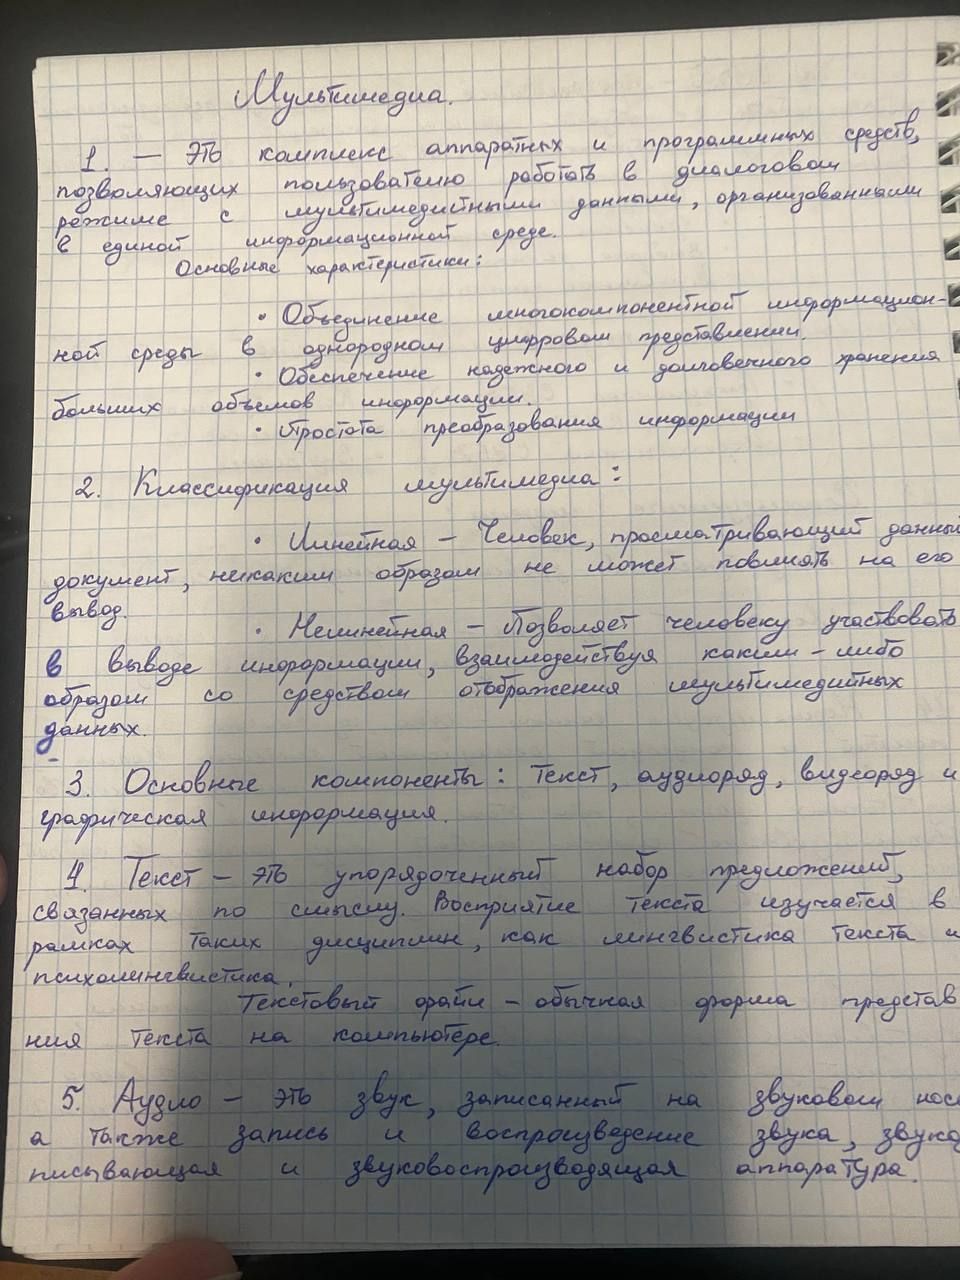 Мультимедиа.
1. — это комплекс аппаратных и программных средств,
позволяющих пользователю работать в диалоговом
режиме с мультимедийными данными, организованными
в единой информационной среде.
Основные характеристики:
• Объединение многокомпонентной информацион-
ной среды в однородном цифровом представлении.
• Обеспечение надежного и долговечного хранения
больших объемов информации.
• Простота преобразования информации
2. Классификация мультимедиа:
• Линейная – Человек, просматривающий данный
документ, никаким образом не может повлиять на его
вывод.
• Нелинейная – Позволяет человеку участвовать
в выводе информации, взаимодействуя каким-либо
образом со средством отображения мультимедийных
данных.
3. Основные компоненты: текст, аудиоряд, видеоряд и
графическая информация.
4. Текст – это упорядоченный набор предложений,
связанных по смыслу. Восприятие текста изучается в
рамках таких дисциплин, как лингвистика текста и
психолингвистика.
Текстовый файл – обычная форма представ
ния текста на компьютере.
5. Аудио – это звук, записанный на звуковом нос
а также запись и воспроизведение звука, звуко
писывающая и звуковоспроизводящая аппаратура.